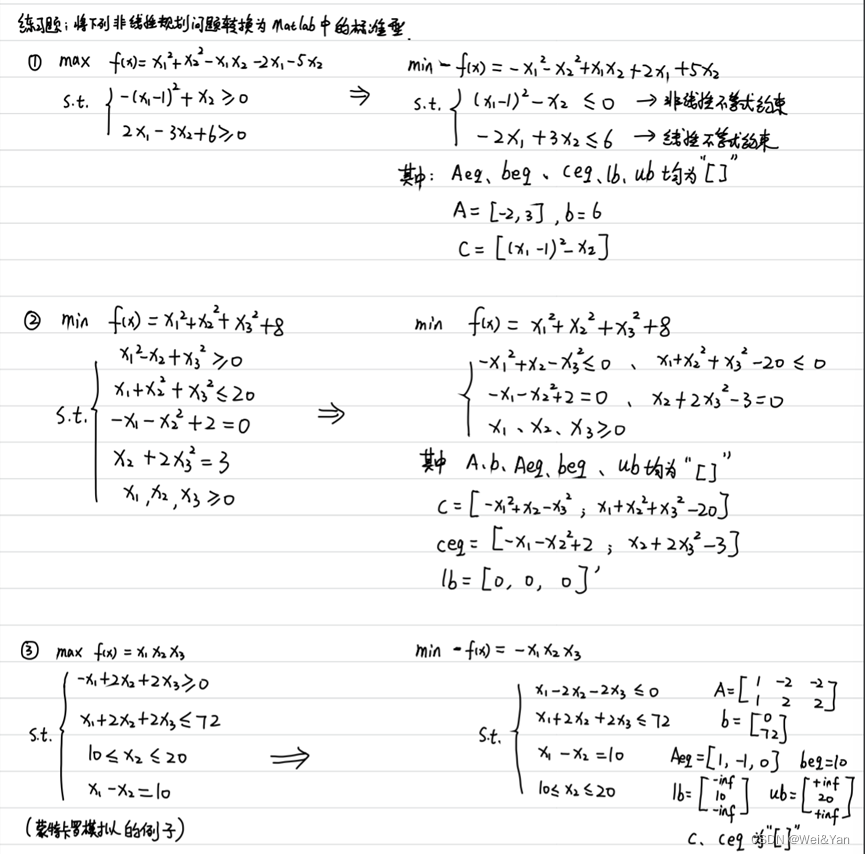 练习题：将下列非线性规划问题转换为Matlab中的标准型.
① max f(x)= x₁²+x₂²-x₁x₂-2x₁-5x₂
s.t. { -(x₁-1)²+x₂≥0
2x₁-3x₂+6≥0
⇒
min -f(x)=-x₁²-x₂²+x₁x₂+2x₁+5x₂
s.t. { (x₁-1)²-x₂ ≤0 → 非线性不等式约束
-2x₁+3x₂≤6 → 线性不等式约束
其中: Aeq、beq、ceq、lb、ub均为"[]"
A=[-2,3],b=6
C=[(x₁-1)²-x₂]
② min f(x)=x₁²+x₂²+x₃²+8
s.t. { x₁²-x₂+x₃²≥0
x₁+x₂²+x₃²≤20
-x₁-x₂²+2=0
x₂+2x₃²=3
x₁,x₂,x₃≥0
⇒
min f(x)= x₁²+x₂²+x₃²+8
{ -x₁²+x₂-x₃²≤0 、 x₁+x₂²+x₃²-20≤0
-x₁-x₂²+2=0 、 x₂+2x₃²-3=0
x₁、x₂、x₃≥0
其中 A.b、Aeq、beq、ub均为"[]"
C=[-x₁²+x₂-x₃² ; x₁+x₂²+x₃²-20]
ceq=[-x₁-x₂²+2 ; x₂+2x₃²-3]
lb=[0, 0, 0]'
③ max f(x)=x₁x₂x₃
s.t. { -x₁+2x₂+2x₃≥0
x₁+2x₂+2x₃≤72
10≤x₂≤20
x₁-x₂=10
(蒙特卡罗模拟的例子)
⇒
min -f(x)=-x₁x₂x₃
s.t. { x₁-2x₂-2x₃≤0
x₁+2x₂+2x₃≤72
x₁-x₂=10
10≤x₂≤20
A=[1 -2 -2
1 2 2]
b=[0
72]
Aeq=[1,-1,0] beq=10
lb=[-inf
10
-inf]
ub=[+inf
20
+inf]
c、ceq为"[]"
CSDN @Wei&Yan